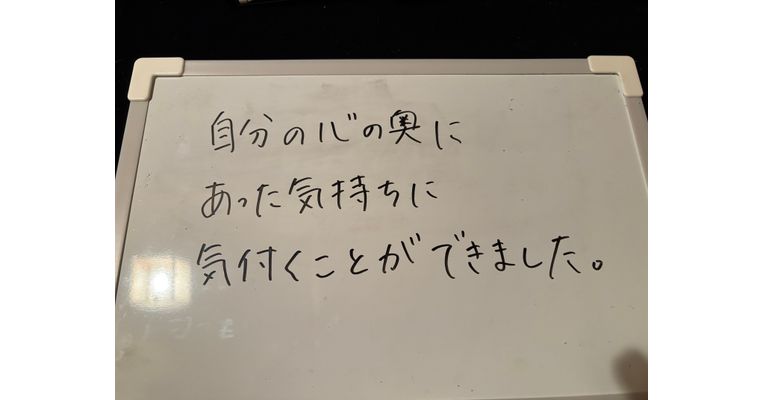 自分の心の奥に
あった気持ちに
気付くことができました。